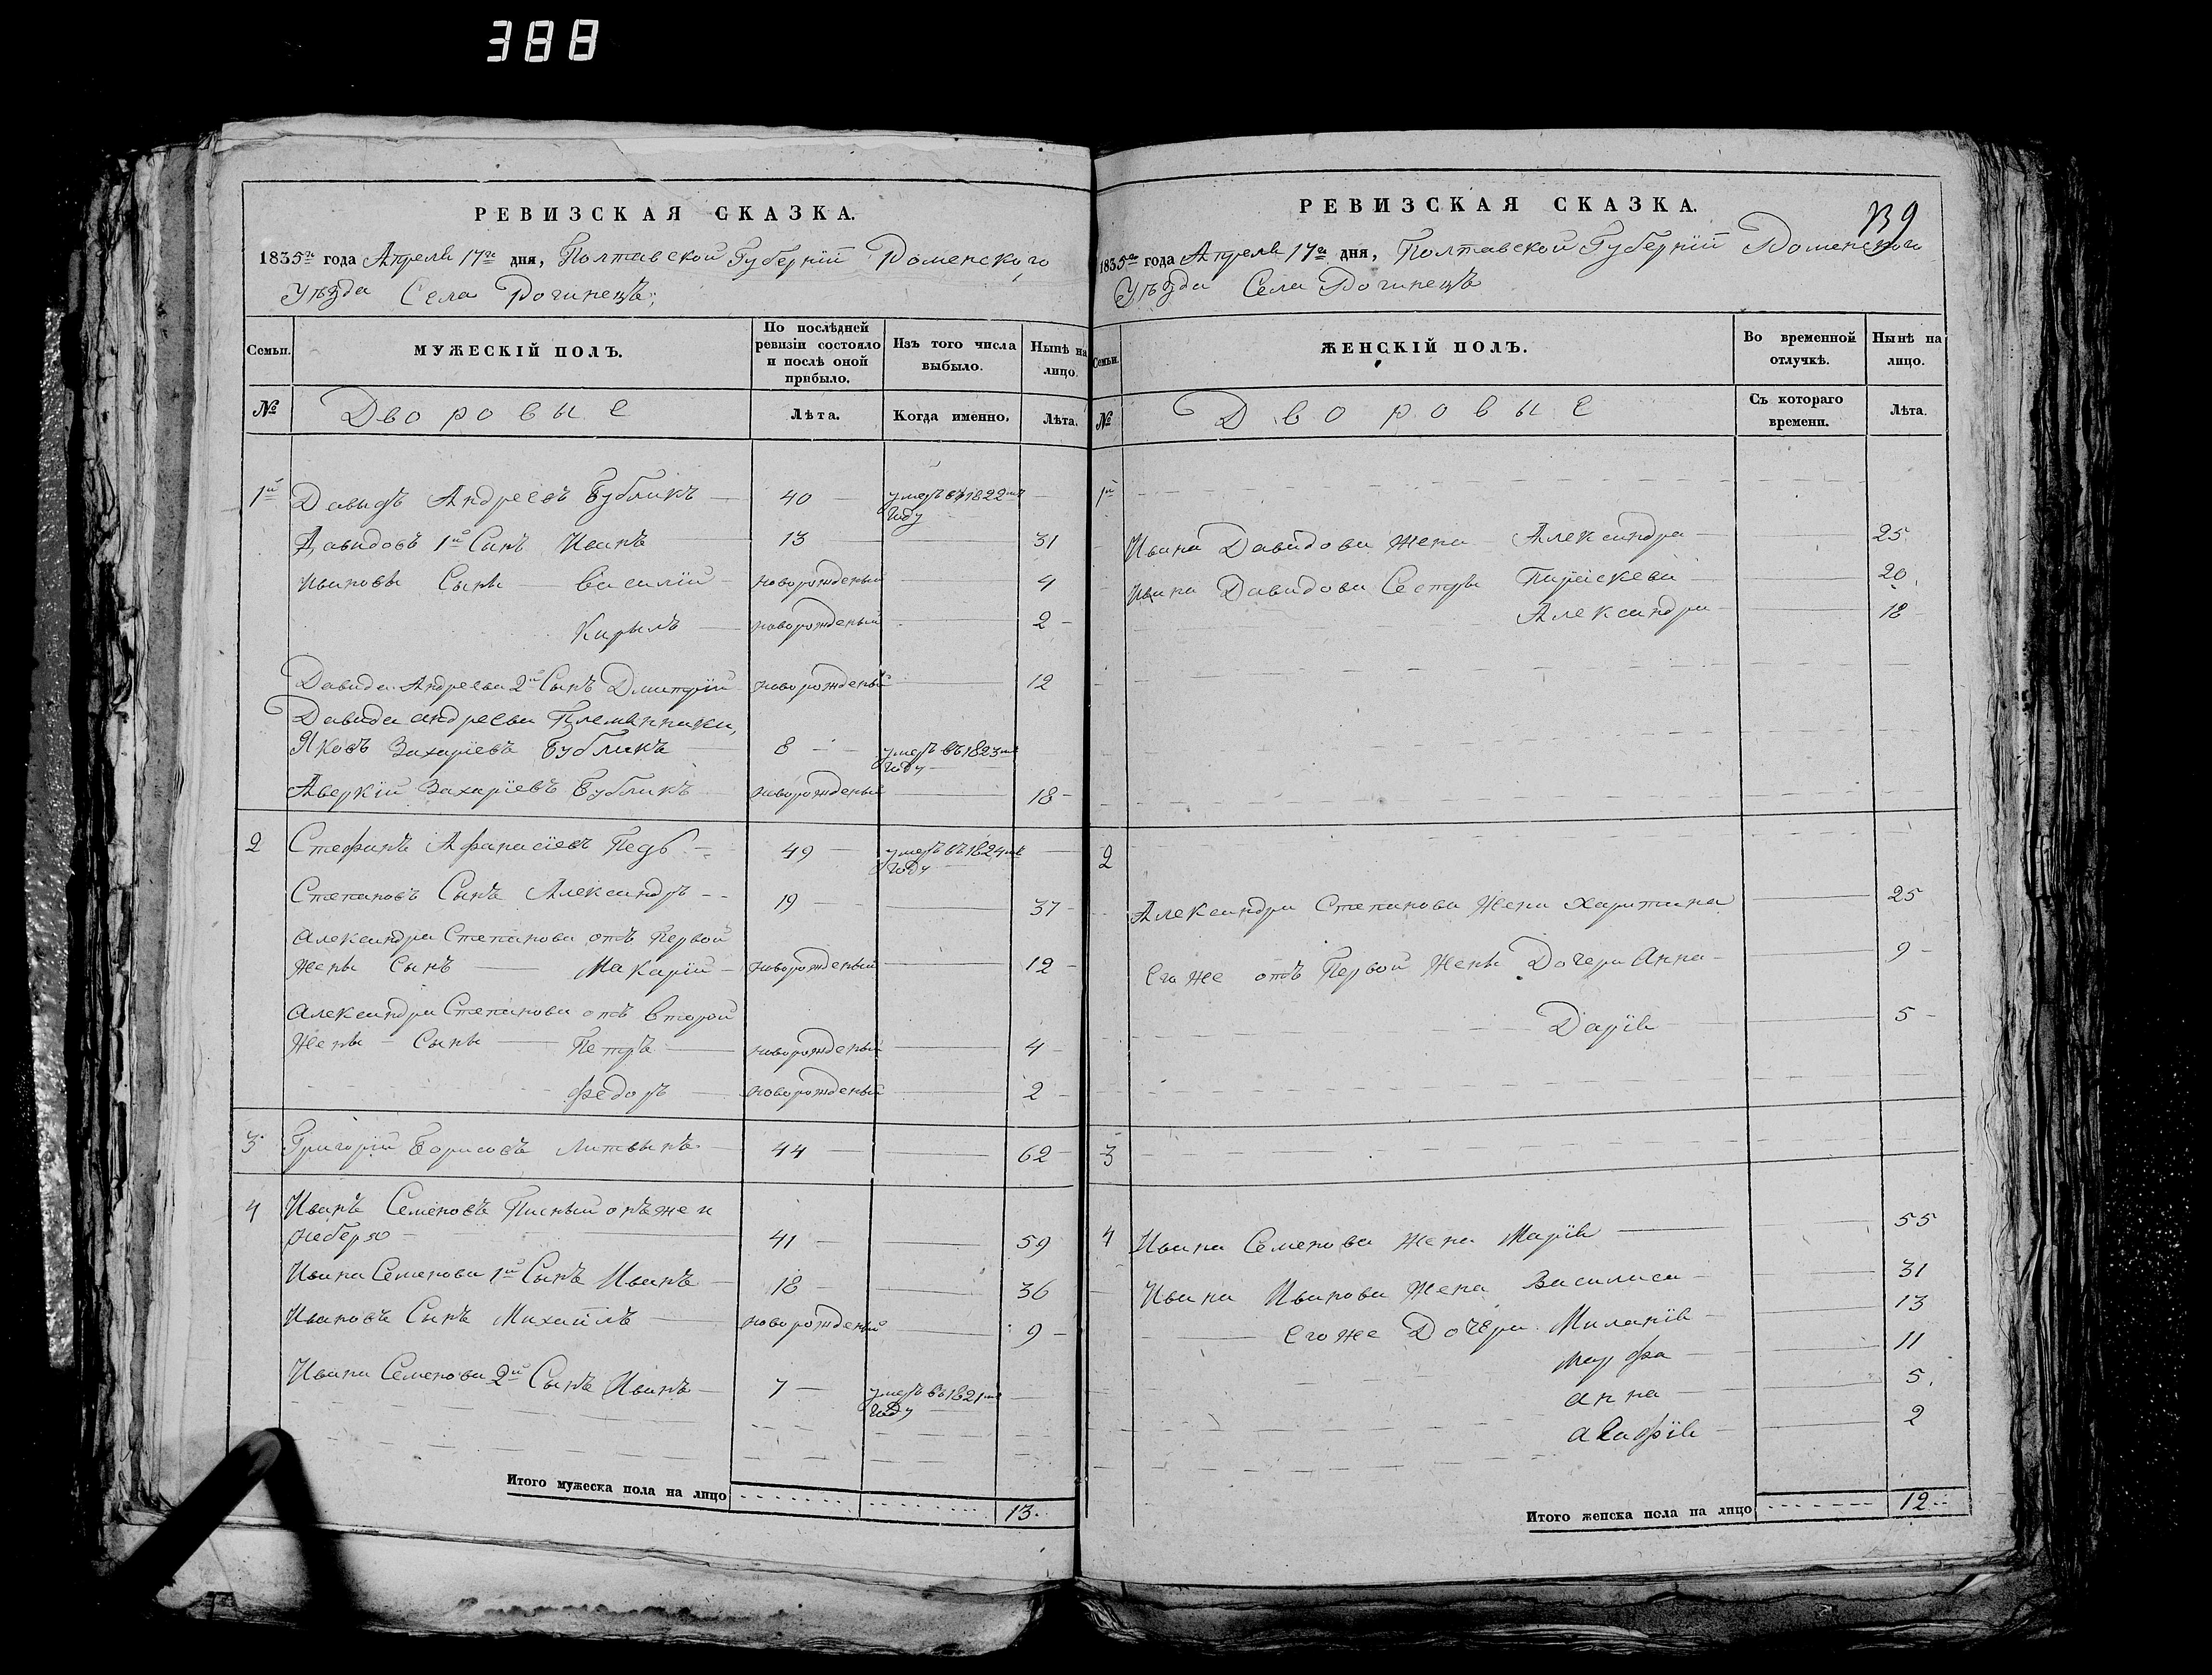 388
РЕВИЗСКАЯ СКАЗКА.
1835го года Апреля 17го дня, Полтавской Губерніи Роменского
Уѣзда Села Рогинецъ;
Семьи. МУЖЕСКІЙ ПОЛЪ. По послѣдней ревизіи состояло и послѣ оной прибыло. Изъ того числа выбыло. Нынѣ на лицо.
№ Дворовые Лѣта. Когда именно. Лѣта.
1й Давыдъ Андреевъ Бубликъ 40 умеръ въ 1822мъ
году
Давидовъ 1й Сынъ Иванъ 13 31
Ивановы Сыны Василій новорожденый 4
Кирылъ новорожденый 2
Давида Андреева 2й Сынъ Дмитрій новорожденый 12
Давида андреева Племянники,
Яковъ Захаріевъ Бубликъ 8 умеръ въ 1823мъ
году
Аверкій Захаріевъ Бубликъ новорожденый 18
2 Стефанъ Афанасіевъ 49 умеръ въ 1824мъ
году
Степановъ Сынъ Александръ 19 37
Александра Степанова отъ Первой
жены Сынъ Макарій новорожденый 12
Александра Степанова отъ второй
Жены Сыны Петръ новорожденый 4
Федоръ новорожденый 2
3 Григорій Борисовъ Литвынъ 44 62
4 Иванъ Семеновъ онъже и
41 59
Ивана Семенова 1й Сынъ Иванъ 18 36
Ивановъ Сынъ Михайлъ новорожденый 9
Ивана Семенова 2й Сынъ Иванъ 7 умеръ въ 1821мъ
году
Итого мужеска пола на лицо 13.
РЕВИЗСКАЯ СКАЗКА.
139
1835го года Апреля 17го дня, Полтавской Губерніи Роменского
Уѣзда Села Рогинецъ
Семьи. ЖЕНСКІЙ ПОЛЪ. Во временной отлучкѣ. Нынѣ на лицо.
№ Дворовые Съ котораго времени. Лѣта.
1й
Ивана Давидова жена Александра 25
Ивана Давидова Сестры Параскева 20
Александра 18
2
Александра Степанова Жена Харитина 25
Его же отъ Первой Жены Дочери Анна 9
Дарія 5
3
4 Ивана Семенова жена Марія 55
Ивана Иванова жена Василиса 31
Его же Дочери Миланія 13
Марфа 11
анна 5
агафія 2
Итого женска пола на лицо 12